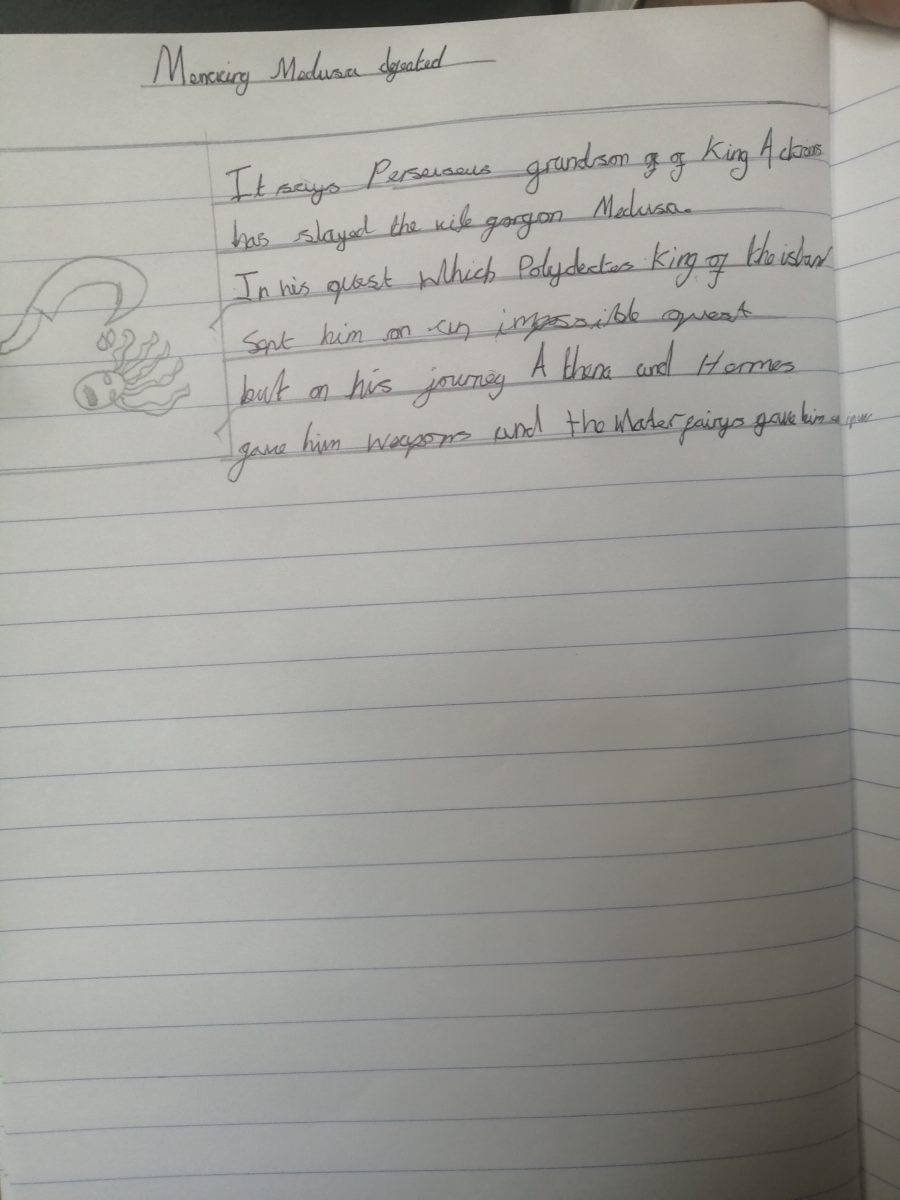 Menacing Medusa defeated
It says Perseuseus grandson of of King Acksions
has slayed the vile gorgon Medusa.
In his quest Which Polydectes King of the island
Sent him on an impossible quest
but on his journey Athena and Hermes
gave him weapons and the Water fairys gave him